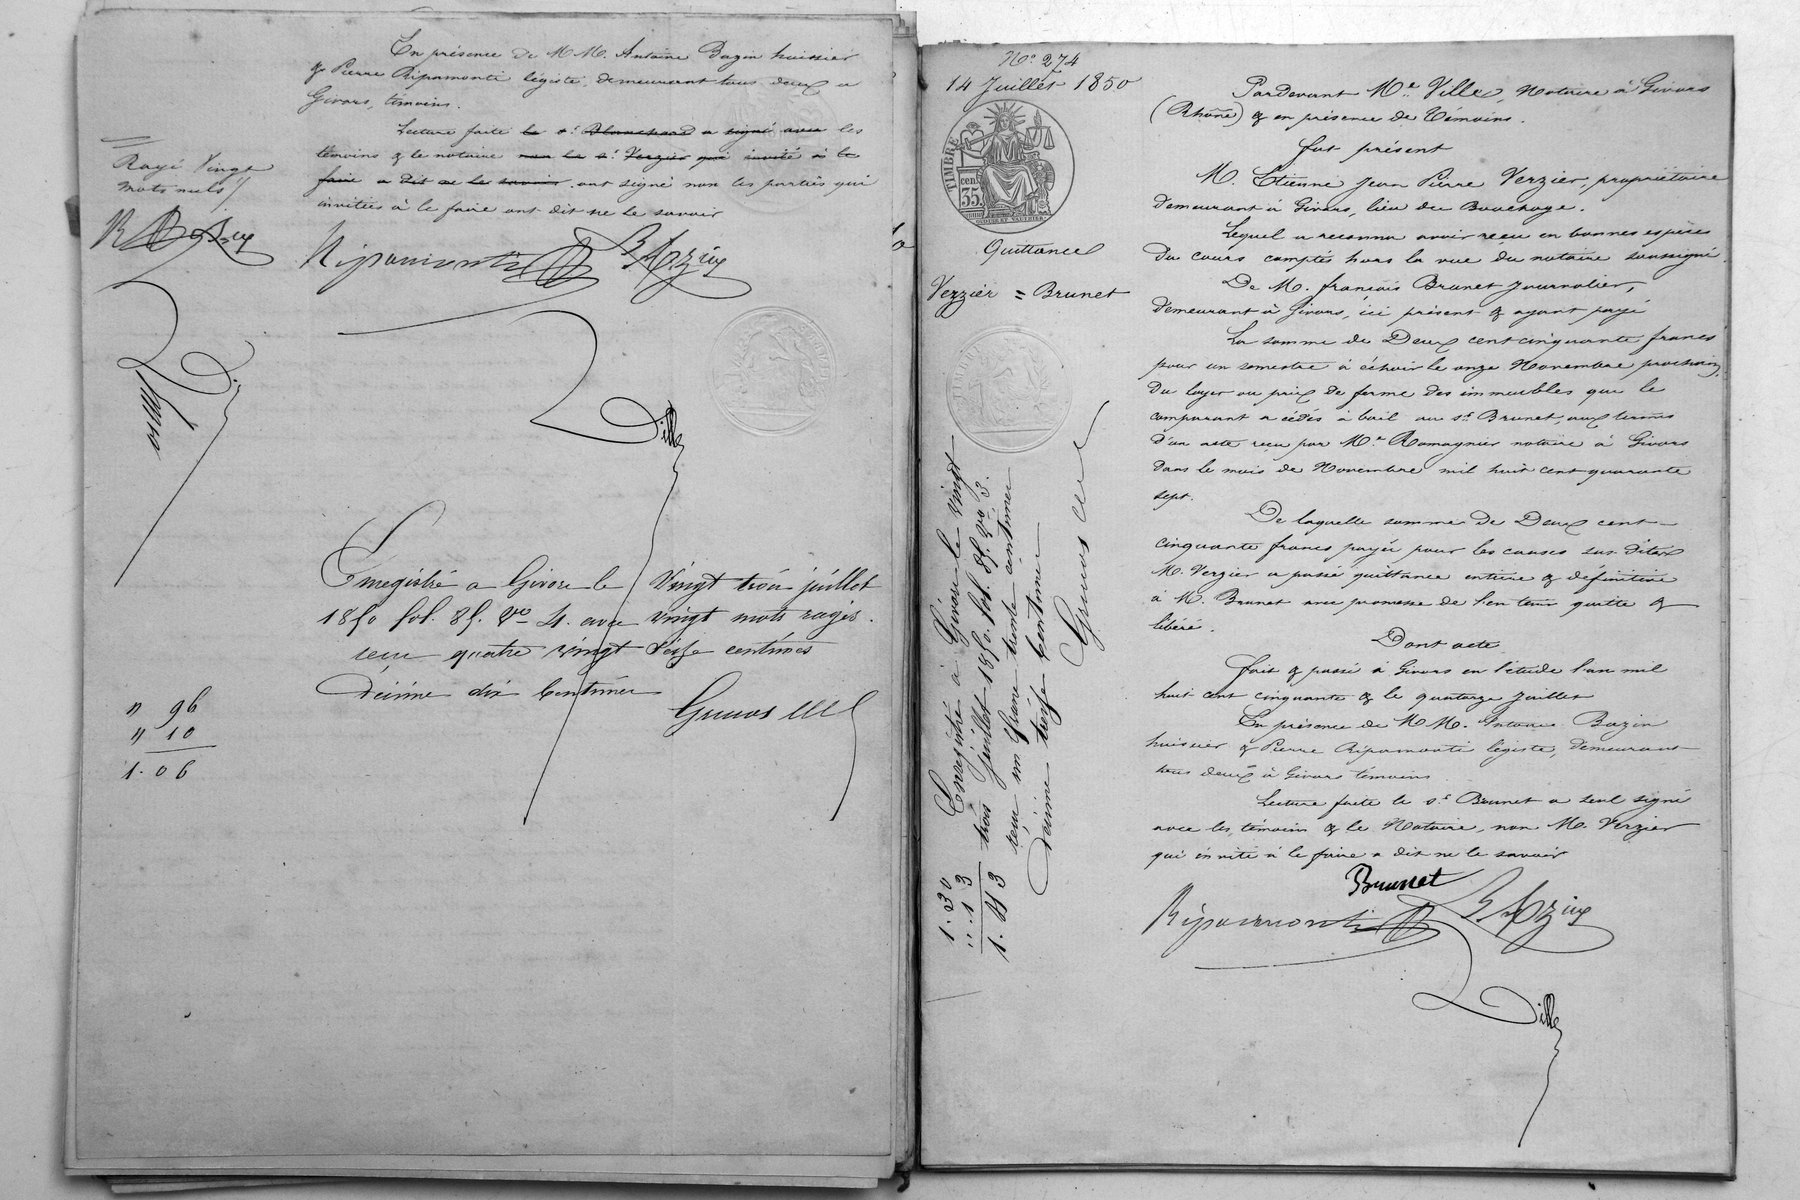 En présence de M M. Antoine Bazin huissier
& Pierre Ripamonti légiste, demeurant tous deux a
Givors, témoins.
Lecture faite le s.r Blanchard a signé avec les
témoins & le notaire non le s.r Verzier qui invité à le
faire a dit ne le savoir. ont signé non les parties qui
invitées à le faire ont dit ne le savoir
Rayé Vingt
mots nuls
Ripamonti Bazin
Ville
Enregistré a Givors le Vingt trois juillet
1850 fol. 85. Vo 4. avec vingt mots rayés.
reçu quatre vingt seize centimes
décime dix centimes
" 96
" 10
1.06
No 274
14 Juillet 1850
TIMBRE
cen.
35
Quittance
Verzier = Brunet
Enregistré à Givors le vingt
trois Juillet 1850. fol. 85. Vo 3.
reçu un franc trente centimes
Décime treize centimes
1.30
".13
1.43
Pardevant Me Ville, Notaire à Givors
(Rhône) & en présence de Témoins.
fut présent
M. Etienne Jean Pierre Verzier, propriétaire
demeurant à Givors, lieu du Bouchage.
Lequel a reconnu avoir reçu en bonnes espèces
du cours comptés hors la vue du notaire soussigné.
De M. françois Brunet Journalier,
demeurant à Givors, ici présent & ayant payé
La somme de Deux cent cinquante francs
pour un semestre à échoir le onze Novembre prochain,
Du loyer ou prix de ferme des immeubles que le
comparant a cédés à bail au s.r Brunet, aux termes
D'un acte reçu par Me Romagnier notaire à Givors
dans le mois de Novembre mil huit cent quarante
sept.
De laquelle somme de Deux cent
cinquante francs payée pour les causes sus-dites
M. Verzier a passé quittance entière & définitive
à M. Brunet avec promesse de l'en tenir quitte &
libéré.
Dont acte
fait & passé à Givors en l'étude l'an mil
huit cent cinquante & le quatorze Juillet
En présence de M M. Antoine Bazin
huissier & Pierre Ripamonti légiste, demeurant
tous deux à Givors témoins
Lecture faite le s.r Brunet a seul signé
avec les témoins & le Notaire, non M. Verzier
qui invité à le faire a dit ne le savoir
Brunet
Ripamonti Bazin
Ville